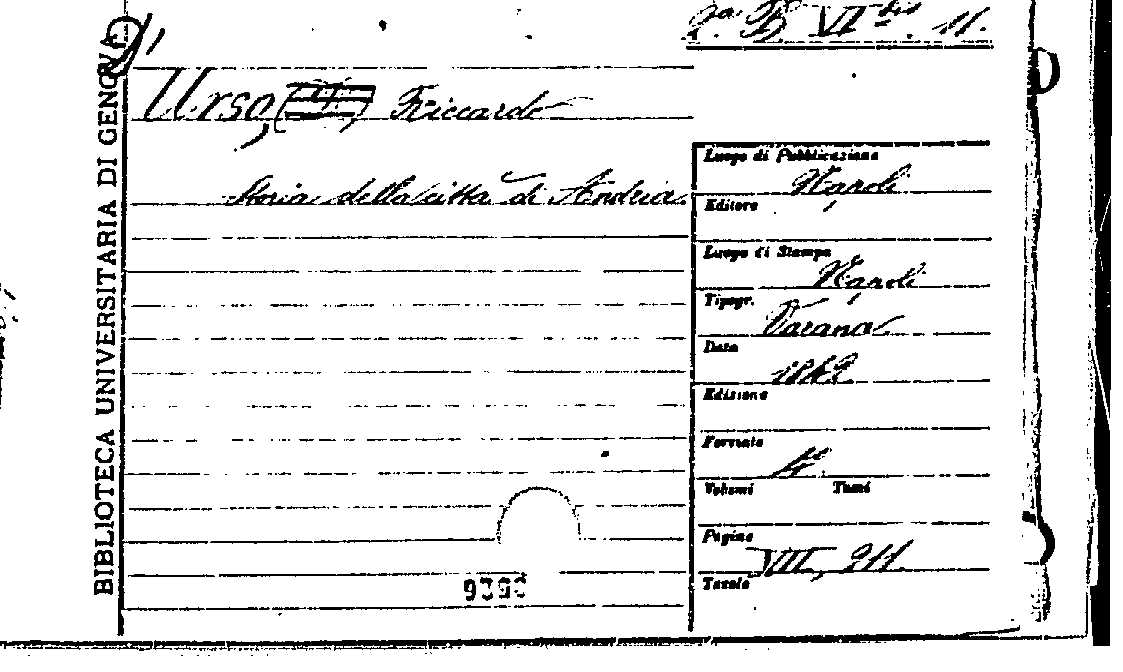 BIBLIOTECA UNIVERSITARIA DI GENOVA
2ª B VI bis. 11.
Urso, Riccardo
Storia della città di Andria.
Luogo di Pubblicazione
Napoli
Editore
Luogo di Stampa
Napoli
Tipogr.
Varana
Data
1842
Edizione
Formato
4º
Volumi Tomi
Pagine
VIII, 211.
Tavole